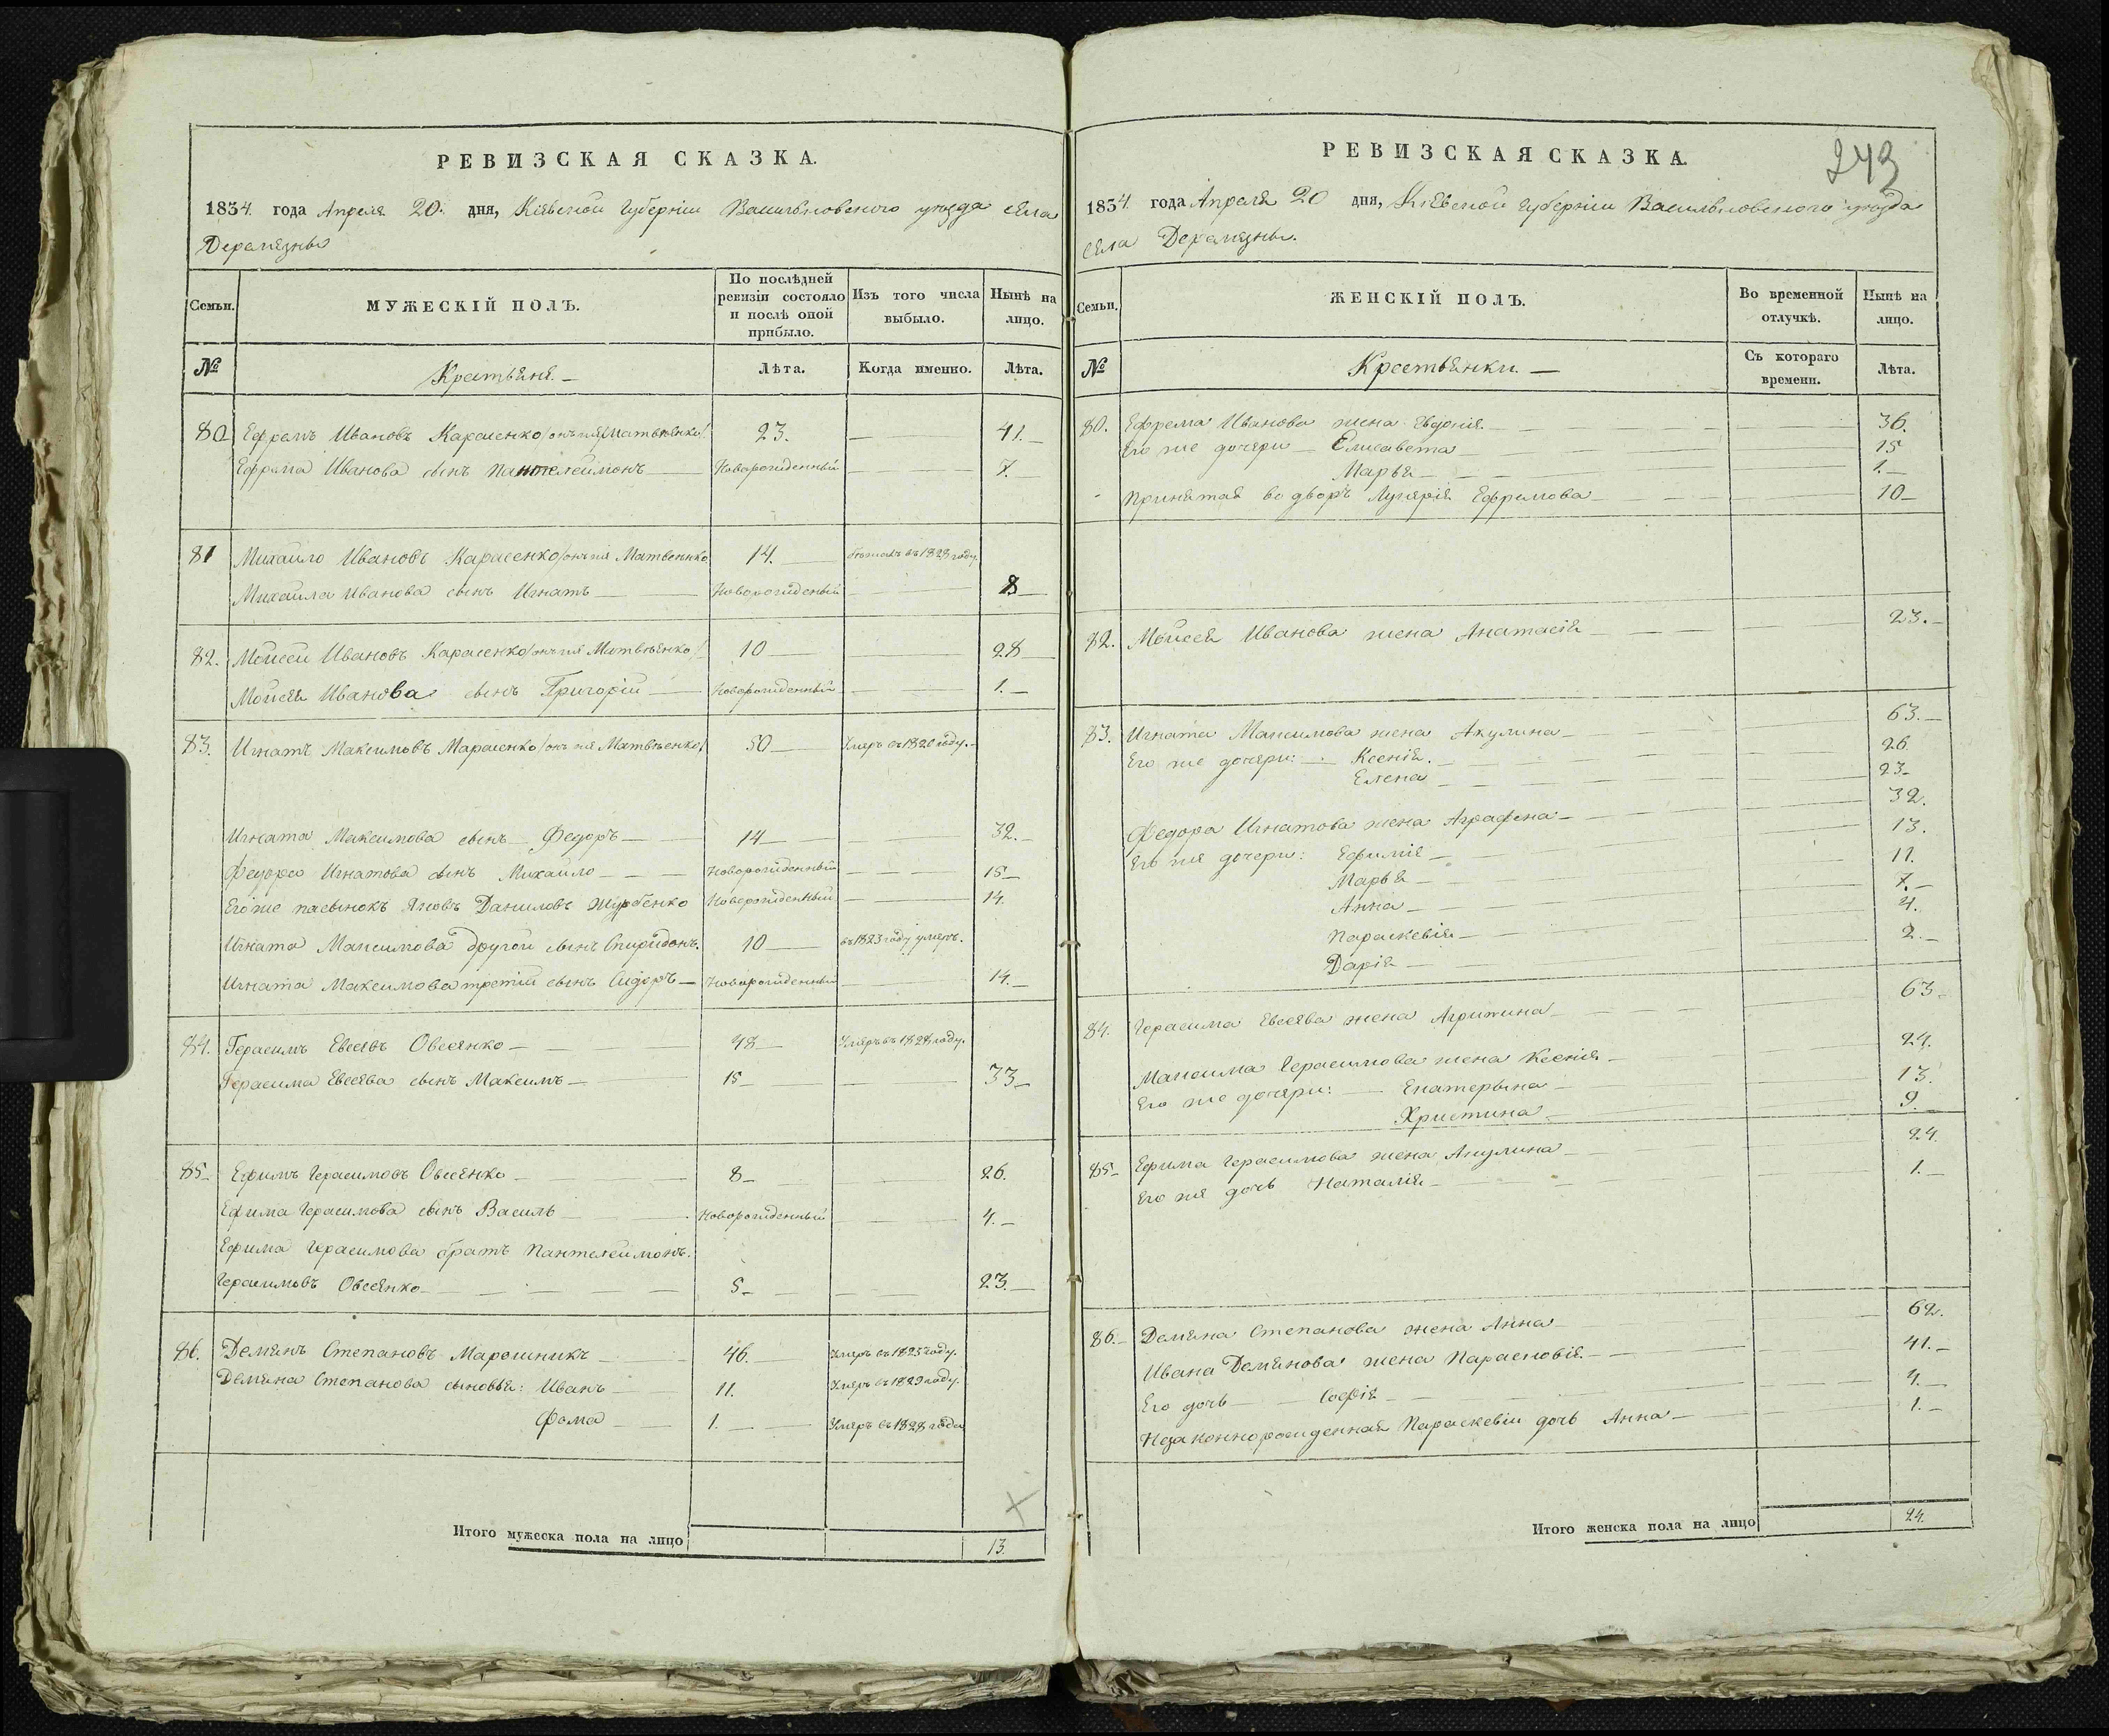 РЕВИЗСКАЯ СКАЗКА.
1834 года Апреля 20 дня, Кіевской Губерніи Васильковского уѣзда села
Деремезны
Семьи.
МУЖЕСКІЙ ПОЛЪ.
По послѣдней ревизіи состояло и послѣ оной прибыло.
Изъ того числа выбыло.
Нынѣ на лицо.
№
Крестьяне. —
Лѣта.
Когда именно.
Лѣта.
80 Ефремъ Ивановъ Карасенко /онъ же Матвѣенко/ 23. — 41. —
Ефрема Иванова сынъ Пантелеймонъ — Новорожденный — 7. —
81 Михайло Ивановъ Карасенко /онъ же Матвѣенко 14. — бѣжалъ въ 1828 году.
Михайла Иванова сынъ Игнатъ — Новорожденый — 8 —
82. Мойсей Ивановъ Карасенко /онъ же Матвѣенко/ 10 — 28 —
Мойсея Иванова сынъ Григорій — Новорожденный — 1. —
83. Игнатъ Максимовъ Марасенко /онъ же Матвѣенко/ 50 — Умеръ въ 1820 году. —
Игната Максимова сынъ Федоръ — 14 — 32. —
Федора Игнатова сынъ Михайло — Новорожденный — 15 —
Его же пасынокъ Яковъ Даниловъ Журбенко Новорожденный — 14.
Игната Максимова другой сынъ Спиридонъ. 10 — въ 1823 году умеръ.
Игната Максимова третій сынъ Сидоръ — Новорожденный — 14. —
84. Герасимъ Евсеевъ Овсеенко — 48 — Умеръ въ 1828 году.
Герасима Евсеева сынъ Максимъ — 15 — 33 —
85 — Ефимъ Герасимовъ Овсеенко — 8 — 26.
Ефима Герасимова сынъ Василь — Новорожденный — 4. —
Ефима Герасимова братъ Пантелеймонъ.
Герасимовъ Овсеенко — 5 — 23. —
86. Демянъ Степановъ Марошникъ — 46. — Умеръ въ 1825 году.
Демяна Степанова сыновья: Иванъ — 11. Умеръ въ 1829 году.
Фома — 1. — Умеръ въ 1828 году
Итого мужеска пола на лицо 13.
РЕВИЗСКАЯ СКАЗКА.
243
1834 года Апреля 20 дня, Кіевской Губерніи Васильковского уѣзда
села Деремезны.
Семьи.
ЖЕНСКІЙ ПОЛЪ.
Во временной отлучкѣ.
Нынѣ на лицо.
№
Крестьянки. —
Съ котораго времени.
Лѣта.
80. Ефрема Иванова жена Евдокія. — 36.
Его же дочери — Елисавета — 15
Марья — 1. —
Принятая во дворъ Лукерія Ефремова — 10 —
82. Мойсея Иванова жена Анатасія — 23. —
83. Игната Максимова жена Акулина — 63. —
Его же дочери: — Ксенія. — 26.
Елена — 23 —
Федора Игнатова жена Аграфена — 32.
Его же дочери: Ефимія — 13.
Марья — 11.
Анна — 7. —
Параскевія — 4.
Дарія — 2. —
84. Герасима Евсеева жена Агрипина — 63 —
Максима Герасимова жена Ксенія — 24.
Его же дочери: — Екатерына — 13.
Христина — 9. —
85 — Ефима Герасимова жена Акулина — 24.
Его же дочь Наталія — 1. —
86. — Демяна Степанова жена Анна — 62.
Ивана Демянова жена Парасковія — 41. —
Его дочь — Софія — 4. —
Незаконнорожденная Параскевіи дочь Анна — 1. —
Итого женска пола на лицо 24.